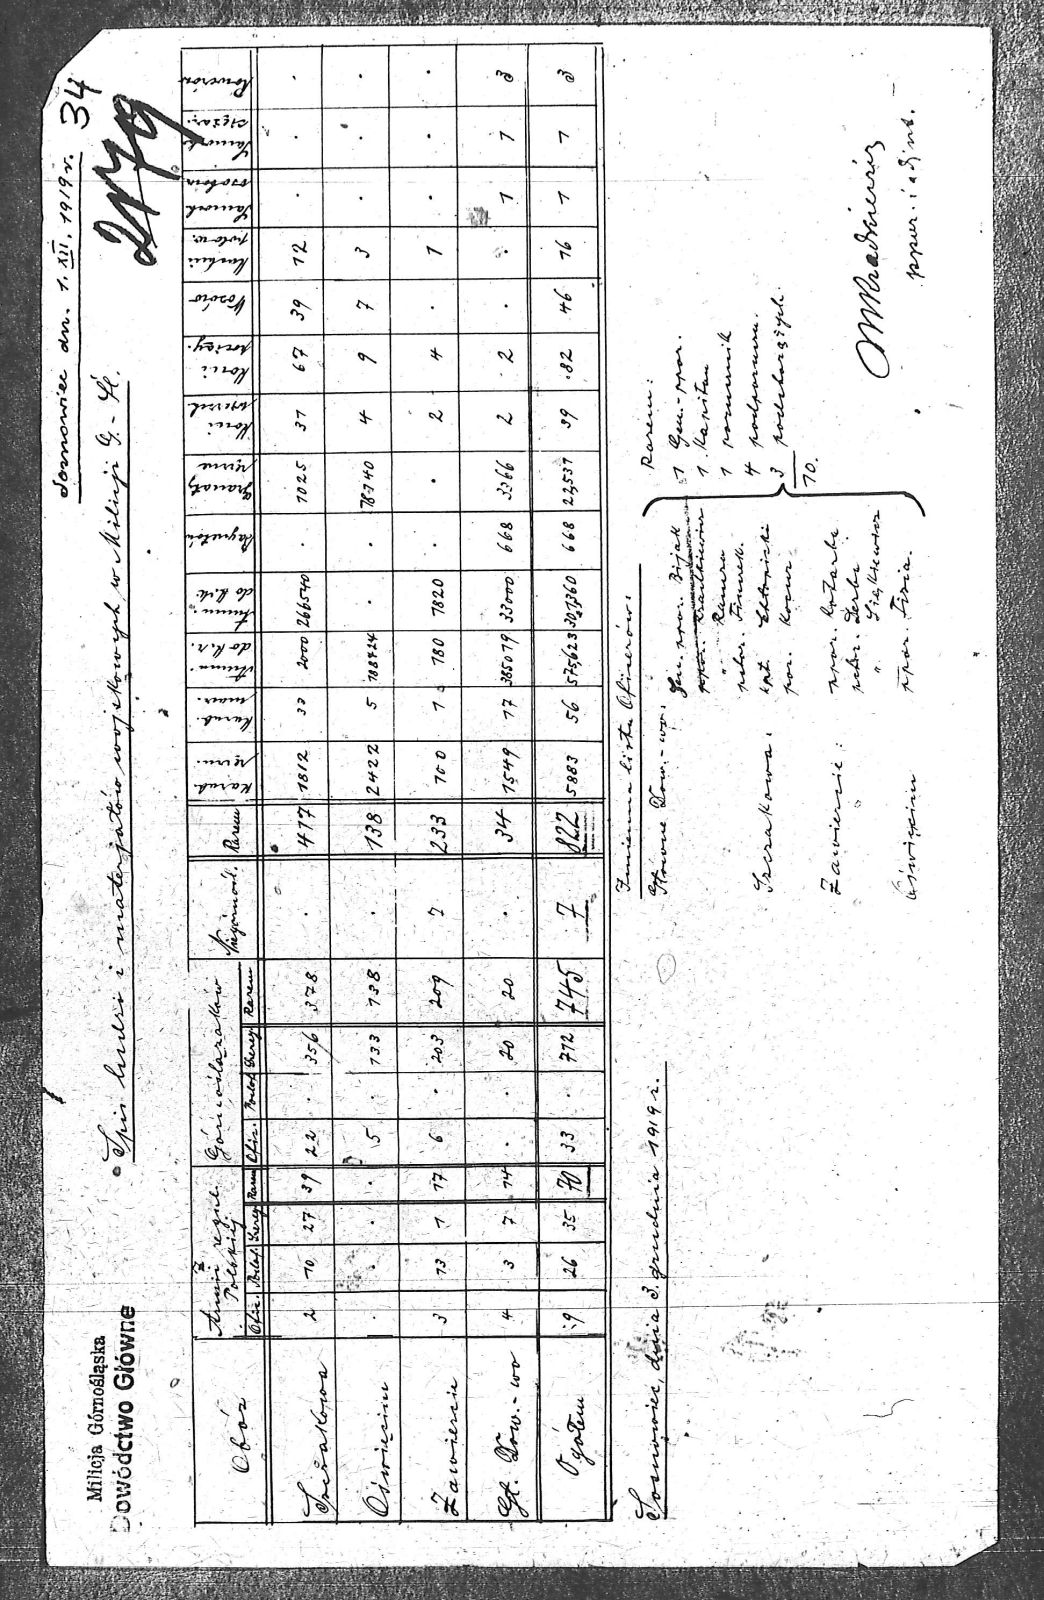 Milicja Górnośląska
Dowództwo Główne
Sosnowiec dn. 1. XII. 1919 r.
34
2179
Spis ludzi i materjałów wojskowych w Milicji G.-Śl.
Obóz Z Armii regul. Polskiej Górnoślązaków Razem Karab. ręczn. Karab. masz. Amun. do k.r. Amun. do k.m. Bagnetów Granaty ręczne Koni wierzch. Koni pociąg. Wozów Kuchni polow. Samoch. osobow. Samoch. ciężar. Rowerów
Ofic. Podof. Szereg. Razem Ofic. Podof. Szereg. Razem
Szczakowa 2 10 27 39 22 . 356 378 . 417 1812 33 2000 266540 . 1025 31 67 39 12 . . .
Oświęcim . . . . 5 . 133 138 . 138 2422 5 188424 . . 18140 4 9 7 3 . . .
Zawiercie 3 13 1 17 6 . 203 209 7 233 100 1 180 1820 . . 2 4 . 1 . . .
Gł. Dow.-wo 4 3 7 14 . . 20 20 . 34 1549 17 385019 33000 668 3366 2 2 . . 1 1 3
Ogółem 9 26 35 70 33 . 712 745 7 822 5883 56 575,623 301,360 668 22,531 39 82 46 16 1 1 3
Sosnowiec, dnia 3. grudnia 1919 r.
Imienna lista Oficerów:
Główne Dow.-wo: Gen. ppor.
Szczakowa: kpt.
por. Kocur
Zawiercie: ppor.
Oświęcim ppor.
Razem:
1 Gen.-ppor.
1 Kapitan
1 porucznik
4 podporucz.
3 podchorążych.
10.
ppor. i adjut.